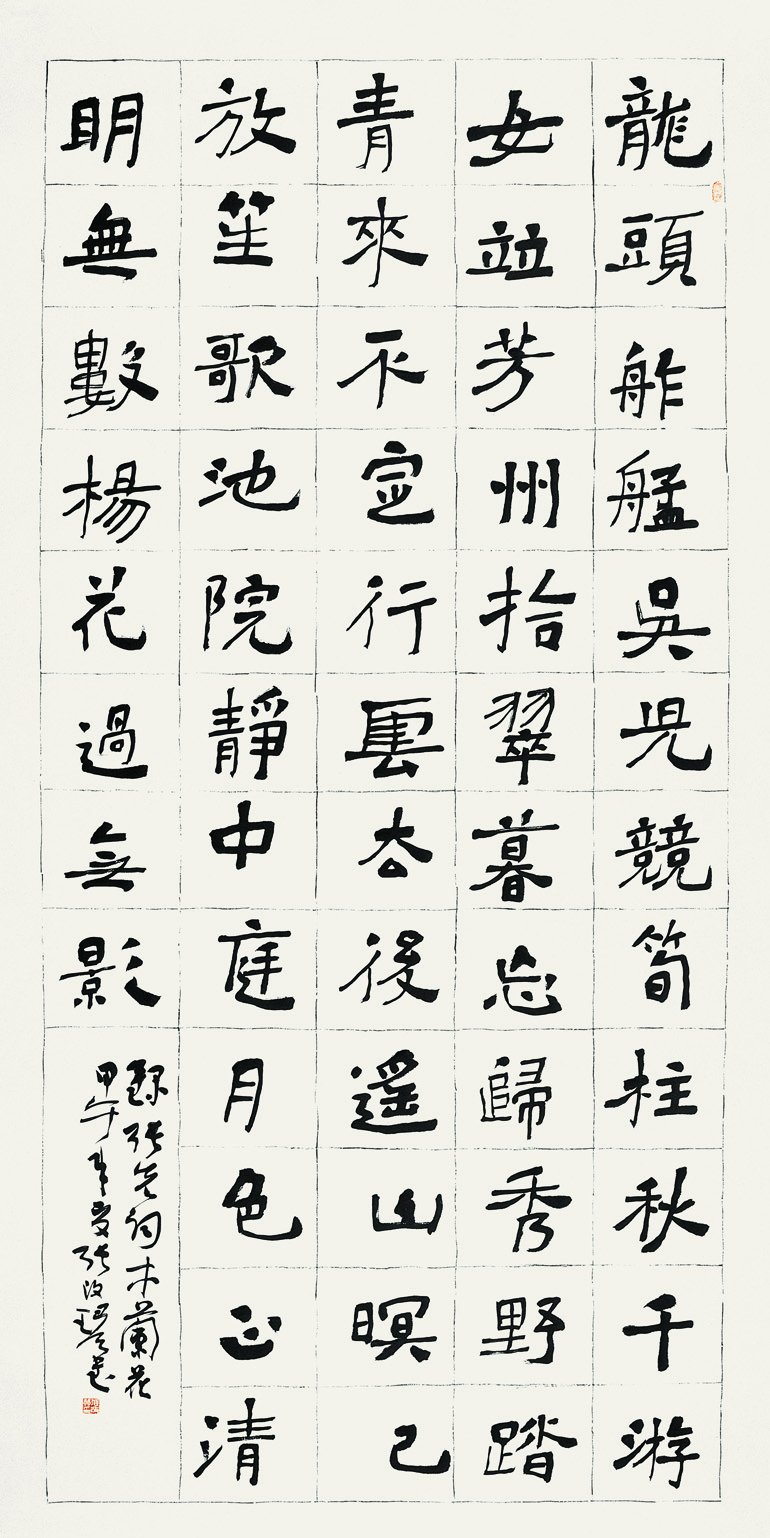 龍頭舴艋吳兒競筍柱秋千游
女竝芳州拾翠暮忘歸秀野踏
青來不定行雲去後遙山暝已
放笙歌池院靜中庭月色正清
明無數楊花過無影
錄張先詞木蘭花
甲午年夏張改琴書